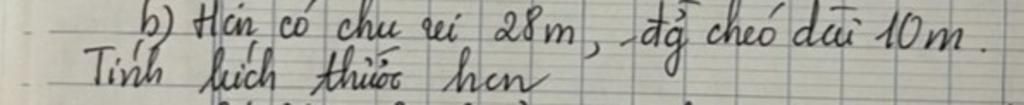 b) Hcn có chu vi 28m, đg chéo dài 10m.
Tính kích thước hcn